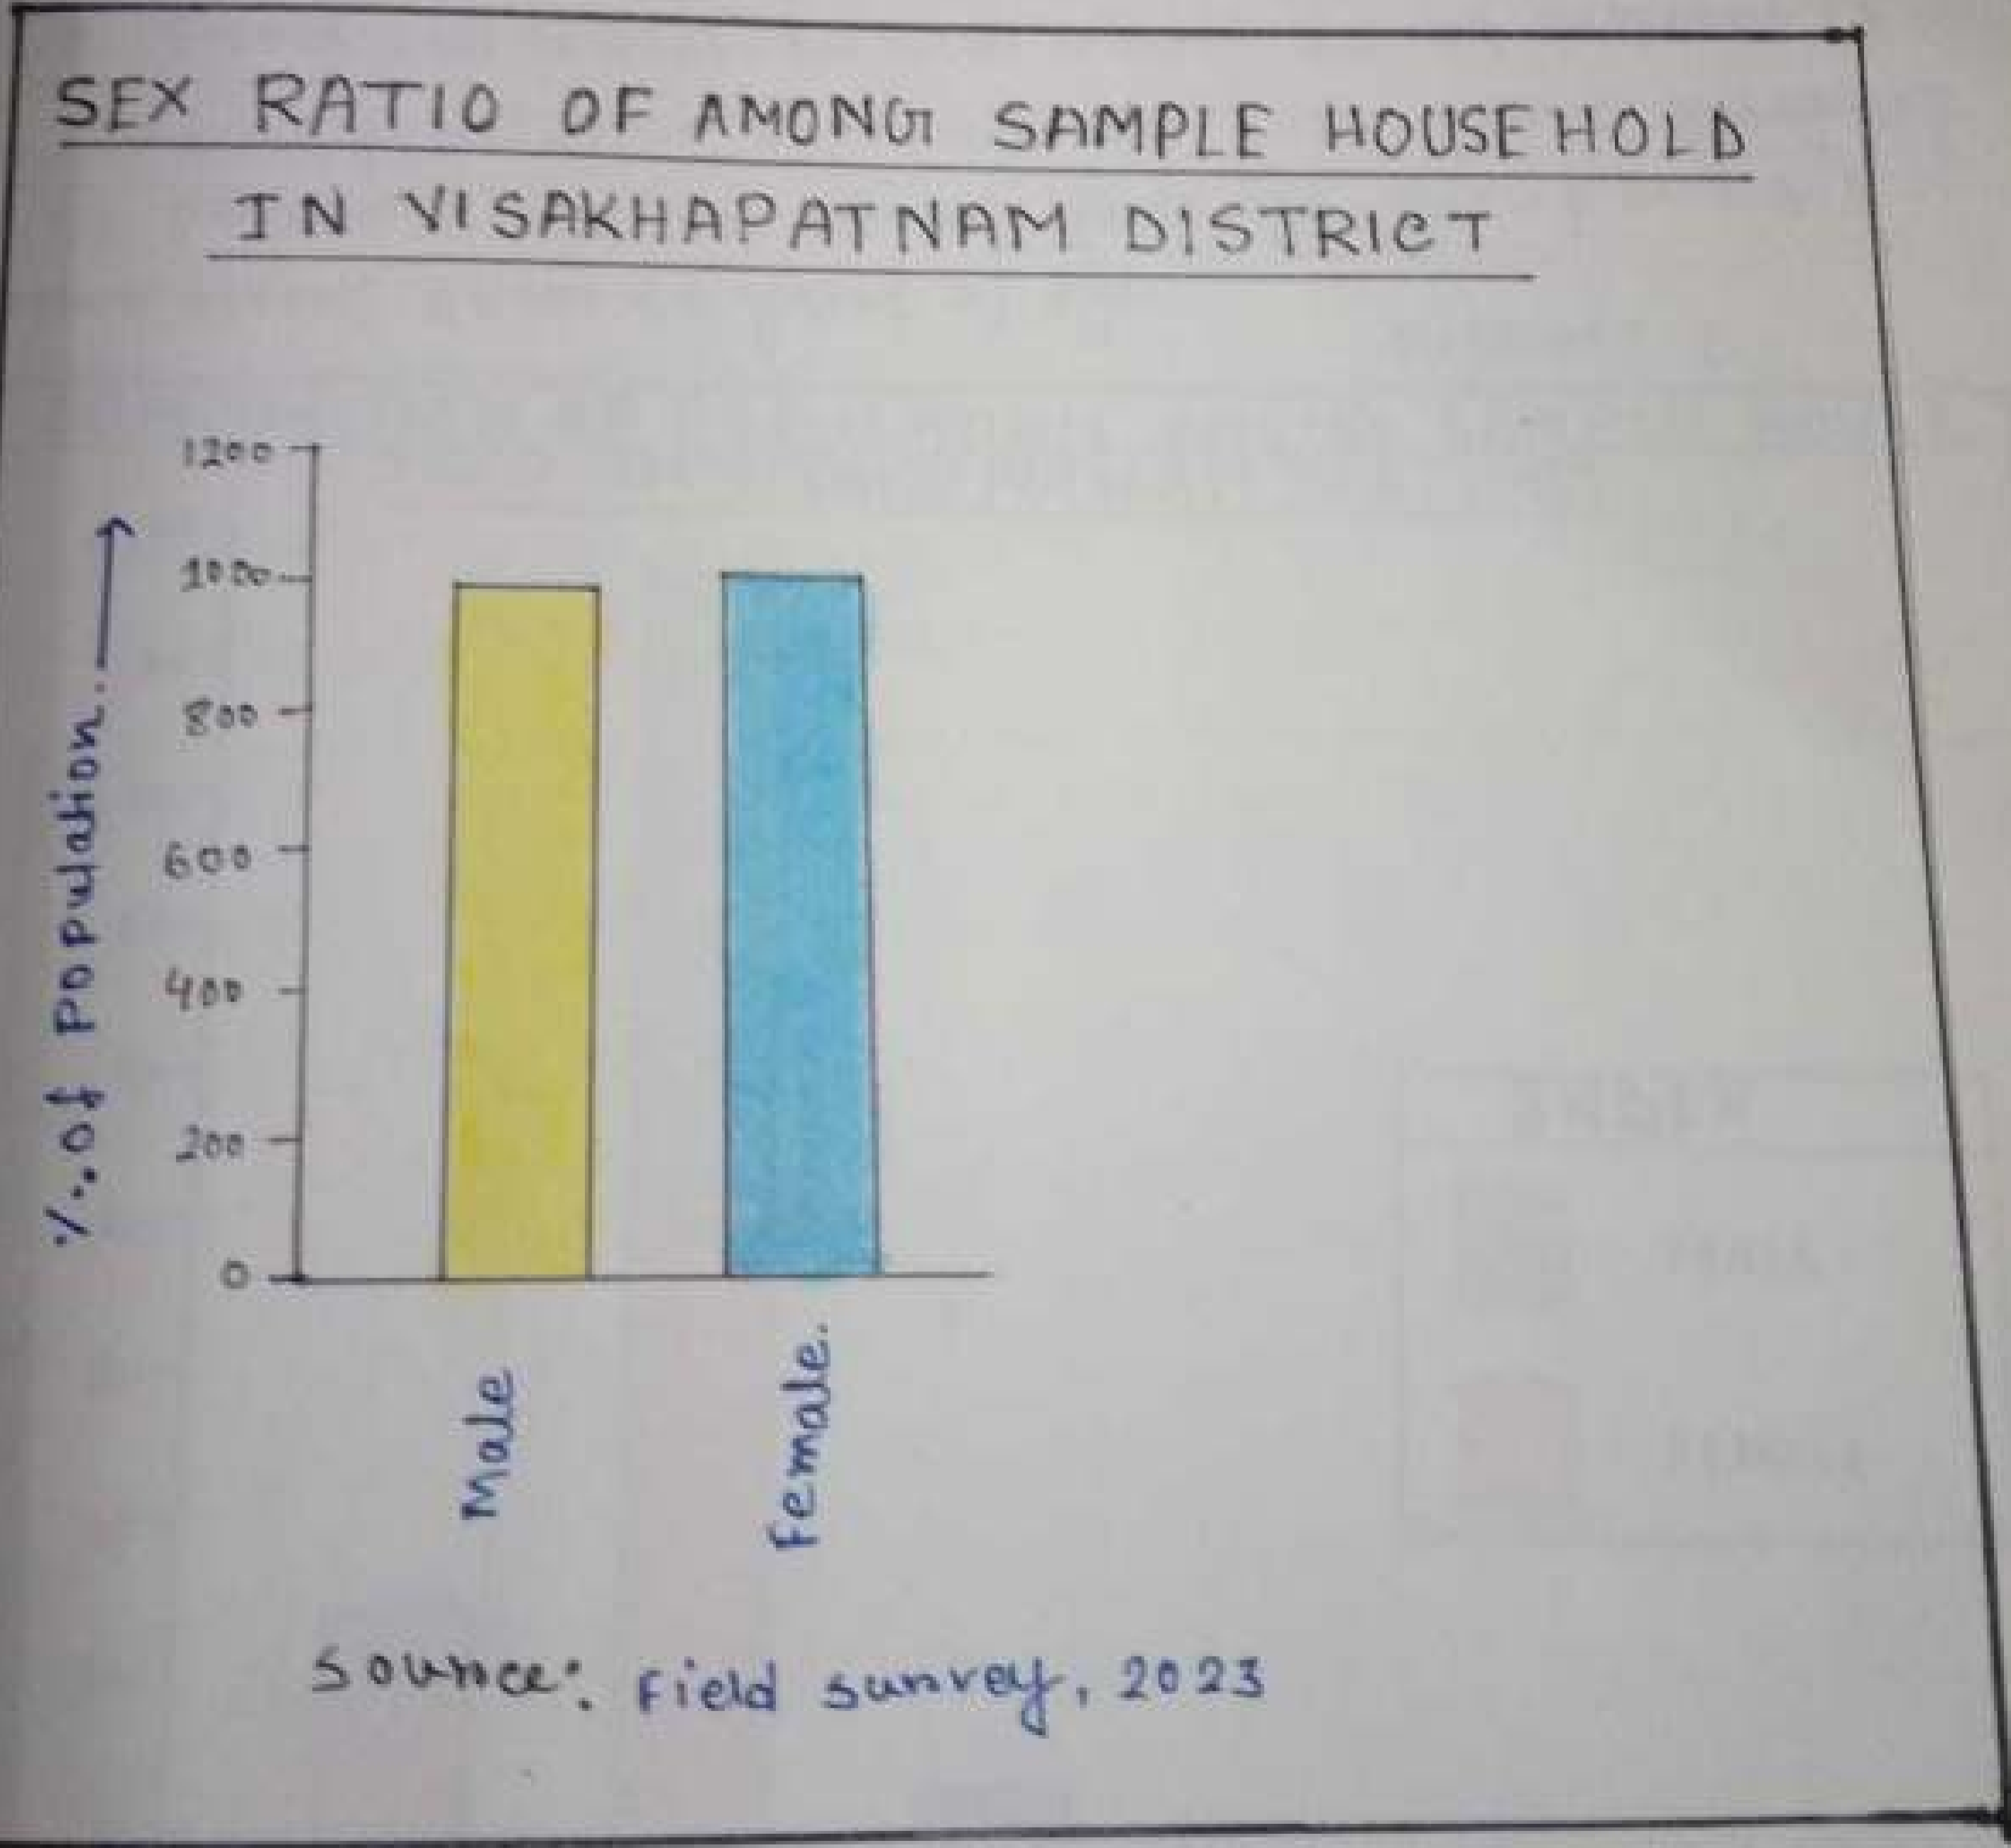 SEX RATIO OF AMONG SAMPLE HOUSEHOLD
IN VISAKHAPATNAM DISTRICT
1200
1000
800
600
400
200
0
%.of Population.
Male
Female.
Source: Field survey, 2023